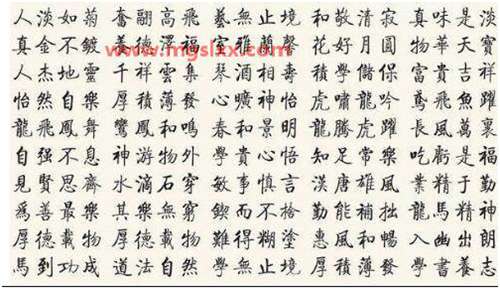 www.mgslxx.com
人淡如菊 奮翮高飛 藝無止境 和敬清寂 真味是淡
真金不鍍 善德澤福 室雅蘭馨 花好月圓 物華天寶
人杰地靈 千祥雲集 琴酒相壽 學儲保 富貴吉祥
怡然自樂 厚積薄發 心曠神怡 虎嘯龍吟 鳶飛魚躍
龍飛鳳舞 鸞鳳和鳴 春和景明 龍騰虎躍 長風萬裏
自强不息 神游物外 學貴心悟 知足常樂 吃虧是福
見賢思齊 水滴石穿 敏事慎言 漢唐雄風 業精于勤
爲善最樂 其樂無窮 鍥而不捨 勤能補拙 龍馬精神
厚德載物 厚德載物 難得糊塗 惠風和暢 入幽出朗
馬到功成 道法自然 學無止境 厚積薄發 學書養志